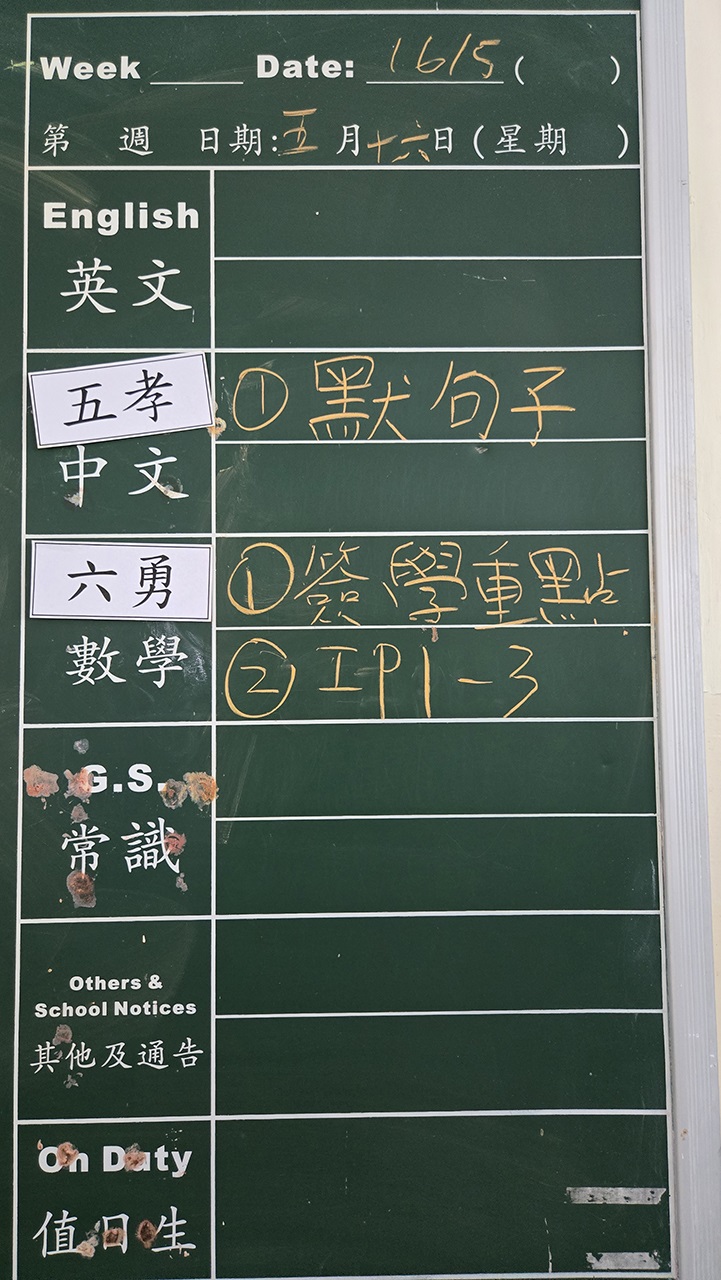 Week ____ Date: 16/5 (    )
第 週 日期:五月十六日(星期 )
English
英文
五孝 ①默句子
中文
六勇 ①簽學重點
數學 ②IP1-3
G.S.
常識
Others &
School Notices
其他及通告
On Duty
值日生